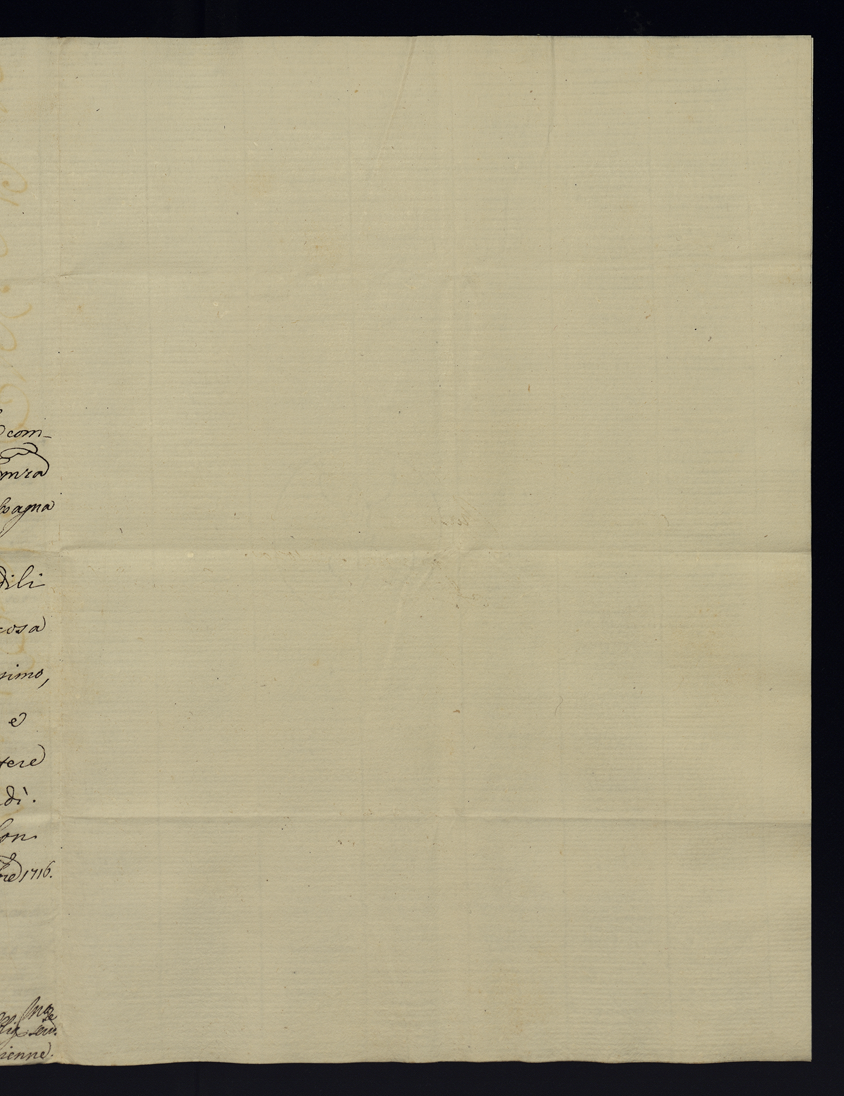 com-
mra
agna
dili
cosa
simo,
e
tere
dì.
on
bre 1716.
ienne.